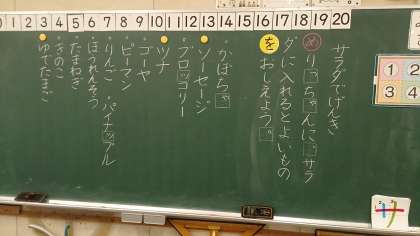 1 2 3 4 5 6 7 8 9 10 11 12 13 14 15 16 17 18 19 20
サラダでげんき
めりっちゃんに、サラ
ダに入れるとよいもの
をおしえよう。
・かぼちゃ
・ソーセージ
・ブロッコリー
・ツナ
・ゴーヤ
・ピーマン
・りんご ・パイナップル
・ほうれんそう
・たまねぎ
・きのこ
・ゆでたまご
① ②
③ ④
サ